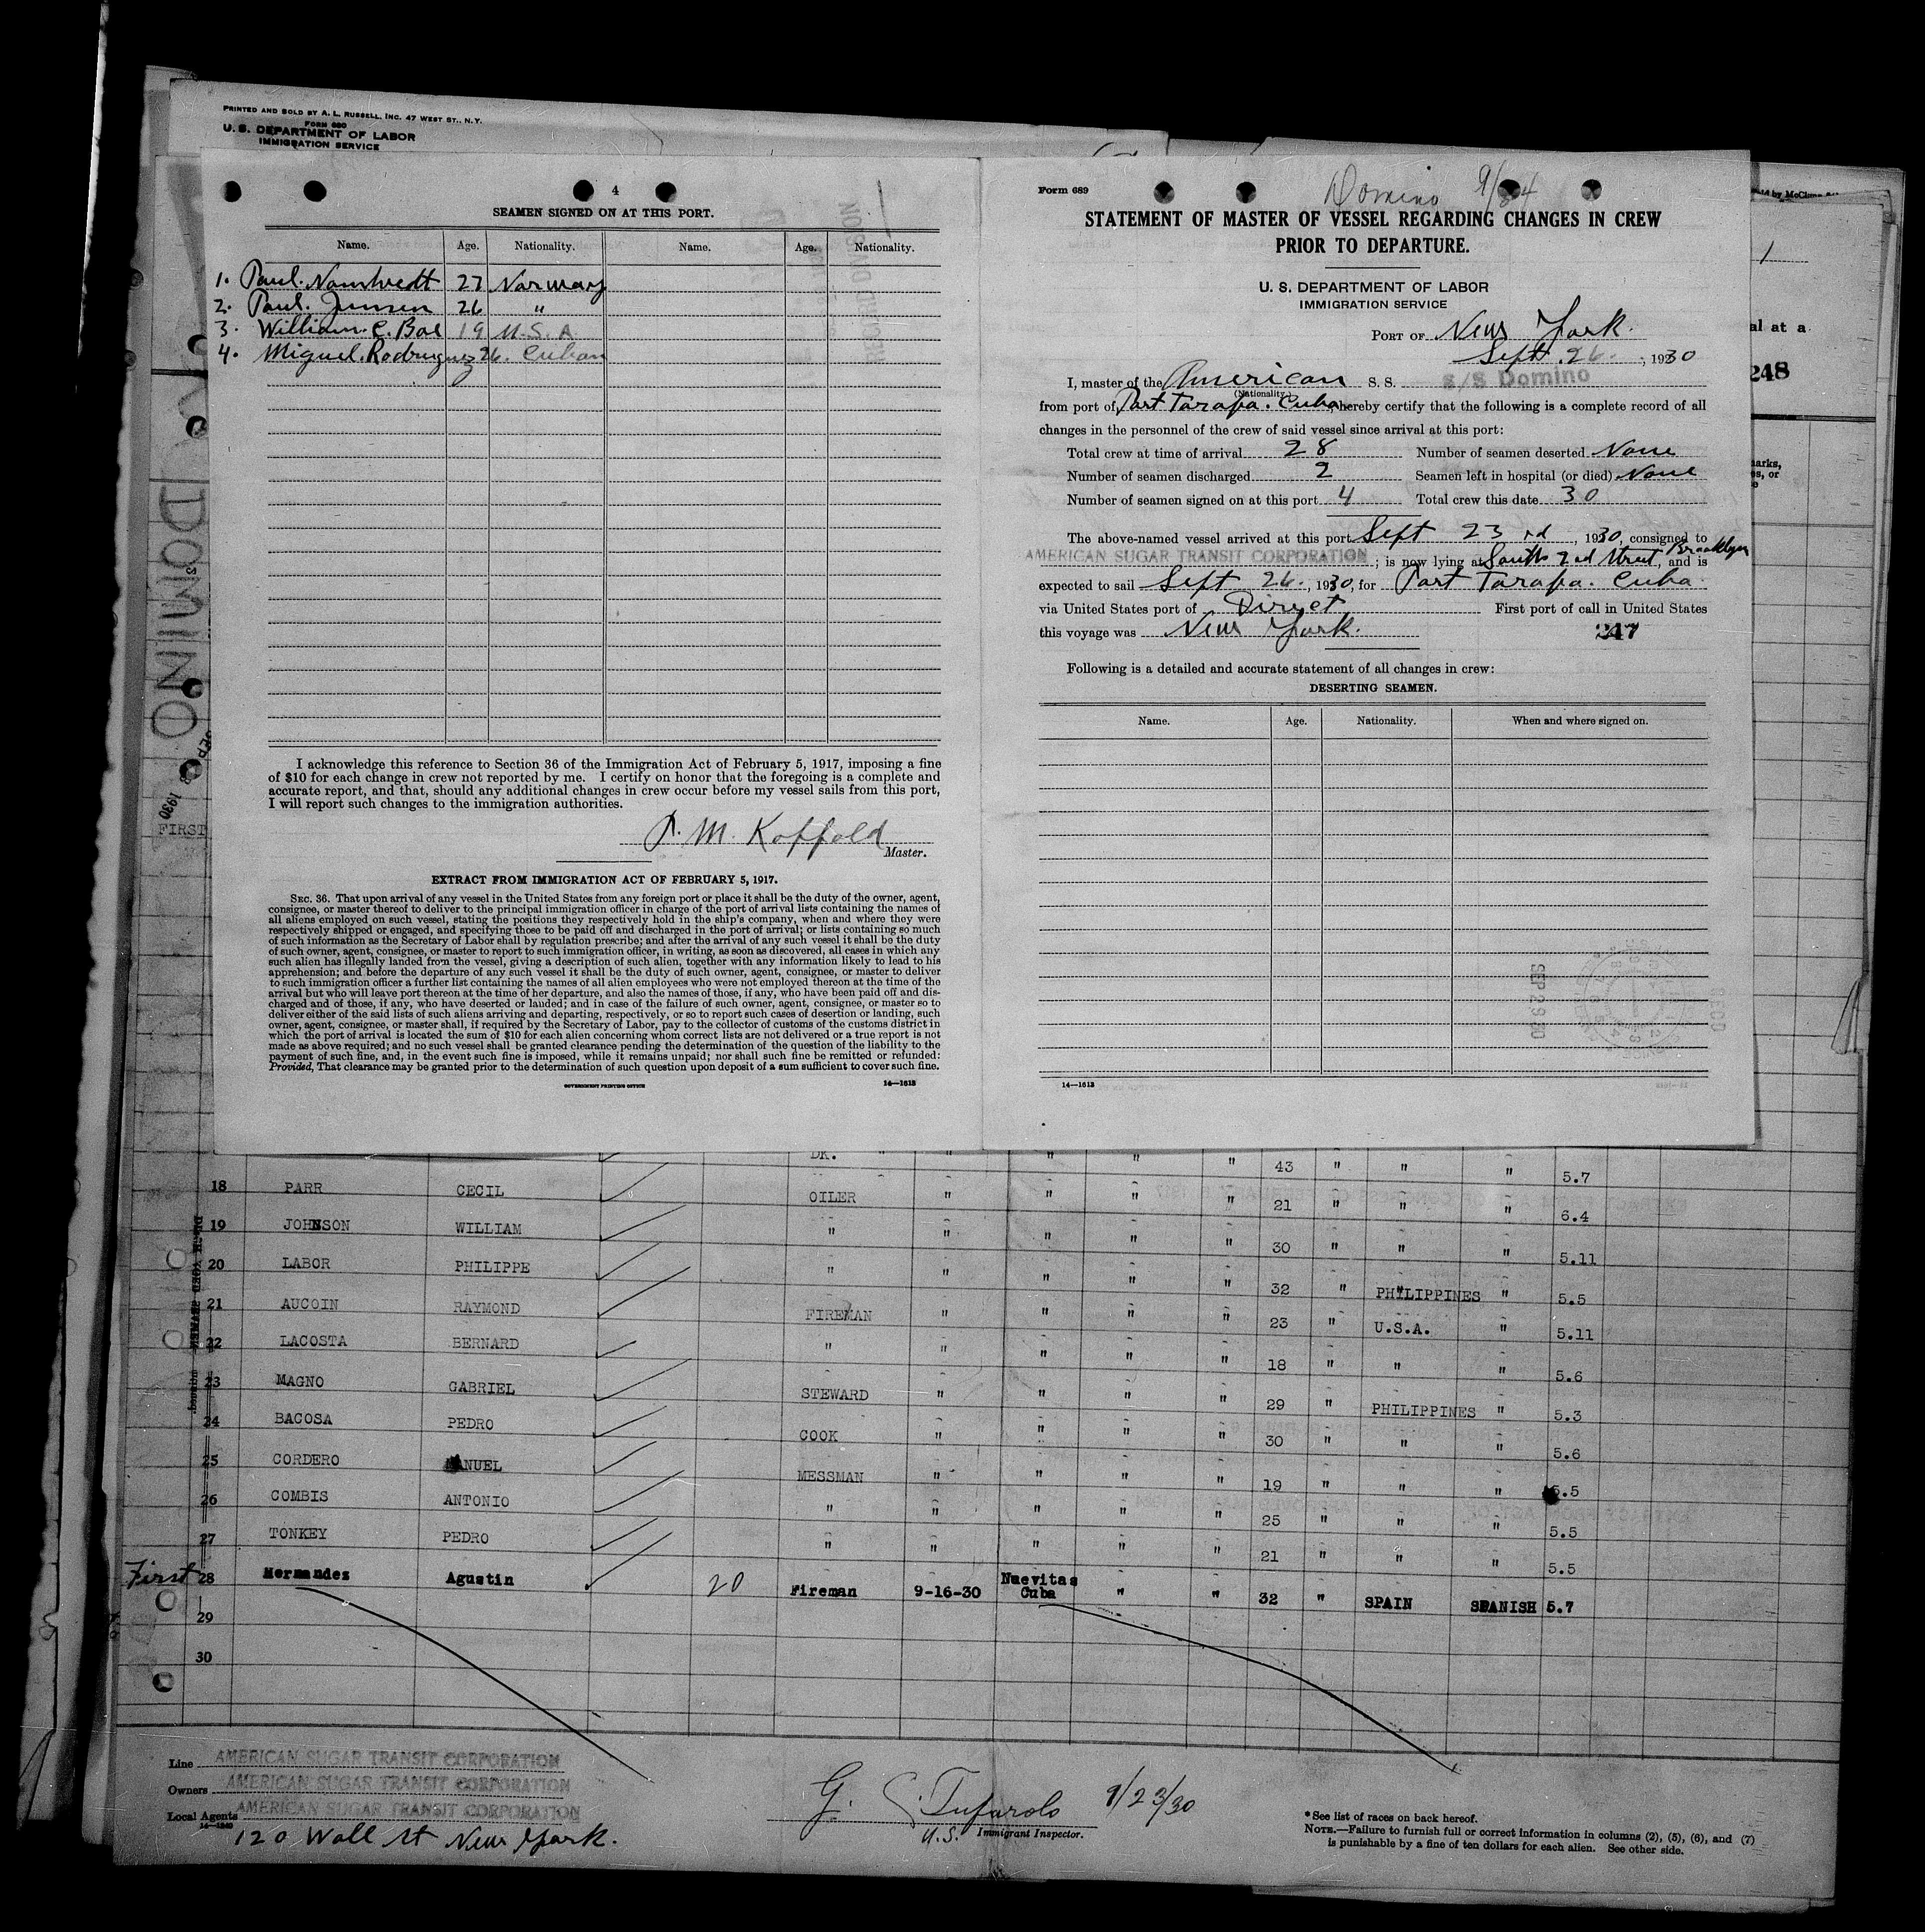 PRINTED AND SOLD BY A. L. RUSSELL, INC. 47 WEST ST., N.Y.
FORM 680
U. S. DEPARTMENT OF LABOR
IMMIGRATION SERVICE
4
SEAMEN SIGNED ON AT THIS PORT.
Name. Age. Nationality. Name. Age. Nationality.
1. Paul. 27 Norway
2. Paul. Jensen 26 "
3. William. C. 19 U.S.A.
4. Miguel. Rodriguez 26. Cuban
I acknowledge this reference to Section 36 of the Immigration Act of February 5, 1917, imposing a fine
of $10 for each change in crew not reported by me. I certify on honor that the foregoing is a complete and
accurate report, and that, should any additional changes in crew occur before my vessel sails from this port,
I will report such changes to the immigration authorities.
P. M. Koffold
Master.
EXTRACT FROM IMMIGRATION ACT OF FEBRUARY 5, 1917.
SEC. 36. That upon arrival of any vessel in the United States from any foreign port or place it shall be the duty of the owner, agent,
consignee, or master thereof to deliver to the principal immigration officer in charge of the port of arrival lists containing the names of
all aliens employed on such vessel, stating the positions they respectively hold in the ship's company, when and where they were
respectively shipped or engaged, and specifying those to be paid off and discharged in the port of arrival; or lists containing so much
of such information as the Secretary of Labor shall by regulation prescribe; and after the arrival of any such vessel it shall be the duty
of such owner, agent, consignee, or master to report to such immigration officer, in writing, as soon as discovered, all cases in which any
such alien has illegally landed from the vessel, giving a description of such alien, together with any information likely to lead to his
apprehension; and before the departure of any such vessel it shall be the duty of such owner, agent, consignee, or master to deliver
to such immigration officer a further list containing the names of all alien employees who were not employed thereon at the time of the
arrival but who will leave port thereon at the time of her departure, and also the names of those, if any, who have been paid off and dis-
charged and of those, if any, who have deserted or landed; and in case of the failure of such owner, agent, consignee, or master so to
deliver either of the said lists of such aliens arriving and departing, respectively, or so to report such cases of desertion or landing, such
owner, agent, consignee, or master shall, if required by the Secretary of Labor, pay to the collector of customs of the customs district in
which the port of arrival is located the sum of $10 for each alien concerning whom correct lists are not delivered or a true report is not
made as above required; and no such vessel shall be granted clearance pending the determination of the question of the liability to the
payment of such fine, and, in the event such fine is imposed, while it remains unpaid; nor shall such fine be remitted or refunded:
Provided, That clearance may be granted prior to the determination of such question upon deposit of a sum sufficient to cover such fine.
GOVERNMENT PRINTING OFFICE 14—1613
Form 689
Domino 9/24
STATEMENT OF MASTER OF VESSEL REGARDING CHANGES IN CREW
PRIOR TO DEPARTURE.
U. S. DEPARTMENT OF LABOR
IMMIGRATION SERVICE
PORT OF New York.
Sept. 26. , 1930
I, master of the American S. S. S/S Domino
(Nationality)
from port of Port Tarafa. Cuba, hereby certify that the following is a complete record of all
changes in the personnel of the crew of said vessel since arrival at this port:
Total crew at time of arrival 28 Number of seamen deserted None
Number of seamen discharged 2 Seamen left in hospital (or died) None
Number of seamen signed on at this port 4 Total crew this date 30
The above-named vessel arrived at this port Sept 23 rd , 1930, consigned to
AMERICAN SUGAR TRANSIT CORPORATION ; is now lying at South 2nd Street Brooklyn, and is
expected to sail Sept 26. , 1930, for Port Tarafa. Cuba
via United States port of Direct First port of call in United States
this voyage was New York. 247
Following is a detailed and accurate statement of all changes in crew:
DESERTING SEAMEN.
Name. Age. Nationality. When and where signed on.
SEP 29 30
14—1613
DOMINO
1930
FIRST
1
al at a
248
DK. " " " " " 43 " " " 5.7
18 PARR CECIL OILER " " " " 21 " " " 6.4
19 JOHNSON WILLIAM " " " " " 30 " " " 5.11
20 LABOR PHILIPPE " " " " " 32 " PHILIPPINES " 5.5
21 AUCOIN RAYMOND FIREMAN " " " " 23 " U.S.A. " 5.11
22 LACOSTA BERNARD " " " " " 18 " " " 5.6
23 MAGNO GABRIEL STEWARD " " " " 29 " PHILIPPINES " 5.3
24 BACOSA PEDRO COOK " " " " 30 " " " 5.6
25 CORDERO MANUEL MESSMAN " " " " 19 " " " 5.5
26 COMBIS ANTONIO " " " " " 25 " " " 5.5
27 TONKEY PEDRO " " " " " 21 " " " 5.5
First 28 Hernandez Agustin 20 Fireman 9-16-30 Nuevitas Cuba " " 32 " SPAIN SPANISH 5.7
29
30
Line AMERICAN SUGAR TRANSIT CORPORATION
Owners AMERICAN SUGAR TRANSIT CORPORATION
Local Agents AMERICAN SUGAR TRANSIT CORPORATION
120 Wall St New York.
G. S. Tufarolo 9/23/30
U.S. Immigrant Inspector.
*See list of races on back hereof.
NOTE.—Failure to furnish full or correct information in columns (2), (5), (6), and (7)
is punishable by a fine of ten dollars for each alien. See other side.